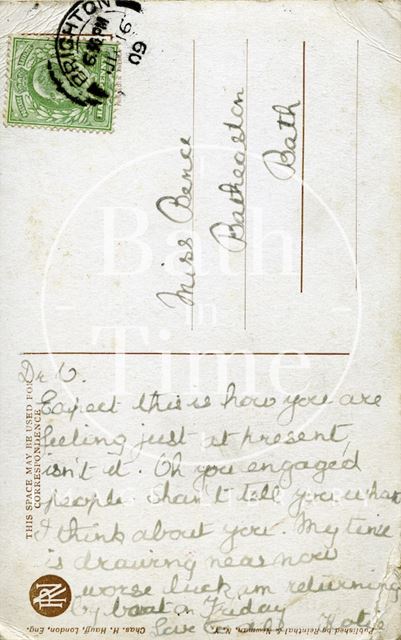 BRIGHTON
6.15 PM
09
Miss Bence
Batheaston
Bath
Bath
in
Time
THIS SPACE MAY BE USED FOR
CORRESPONDENCE
Dr V.
Expect this is how you are
feeling just at present,
isn't it. Oh you engaged
people shan't tell you what
I think about you. My time
is drawing near now
worse luck, am returning
by boat on Friday
Love to all. Katie
Published by Reinthal & Newman, N.Y.
Chas. H. Hauff, London, Eng.